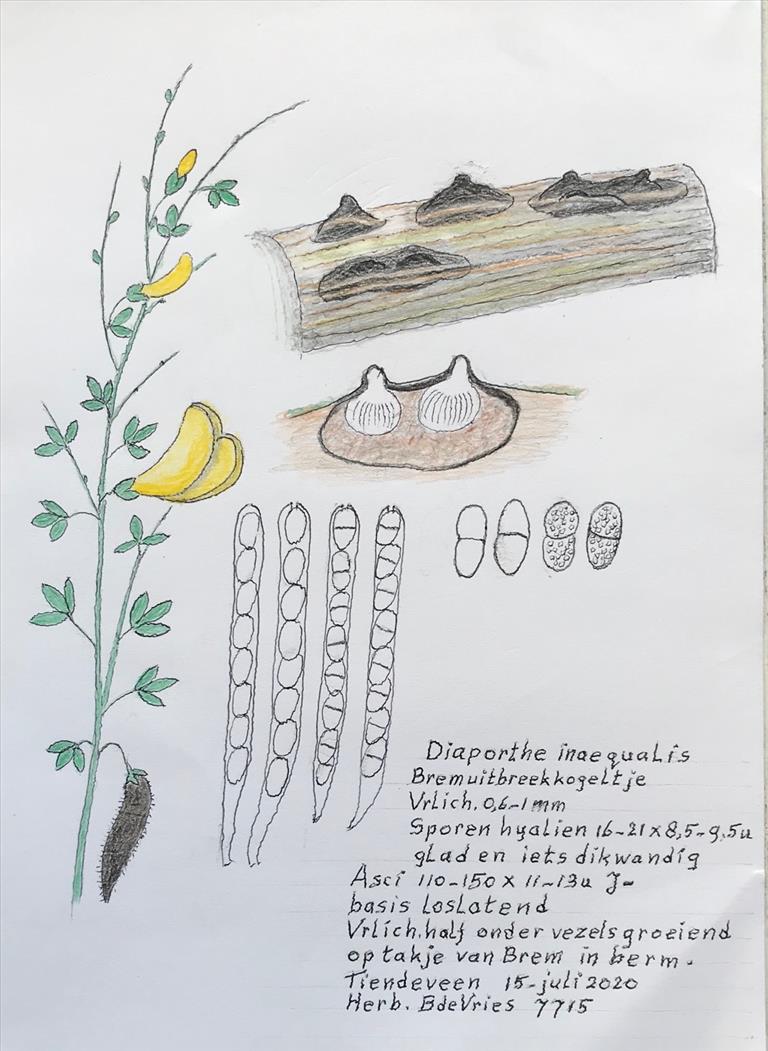 Diaporthe inaequalis
Bremuitbreekkogeltje
Vrlich. 0,6-1mm
Sporen hyalien 16-21 x 8,5-9,5u
glad en iets dikwandig
Asci 110-150 x 11-13u J-
basis loslatend
Vrlich. half onder vezels groeiend
op takje van Brem in berm.
Tiendeveen 15-juli 2020
Herb. BdeVries 7715